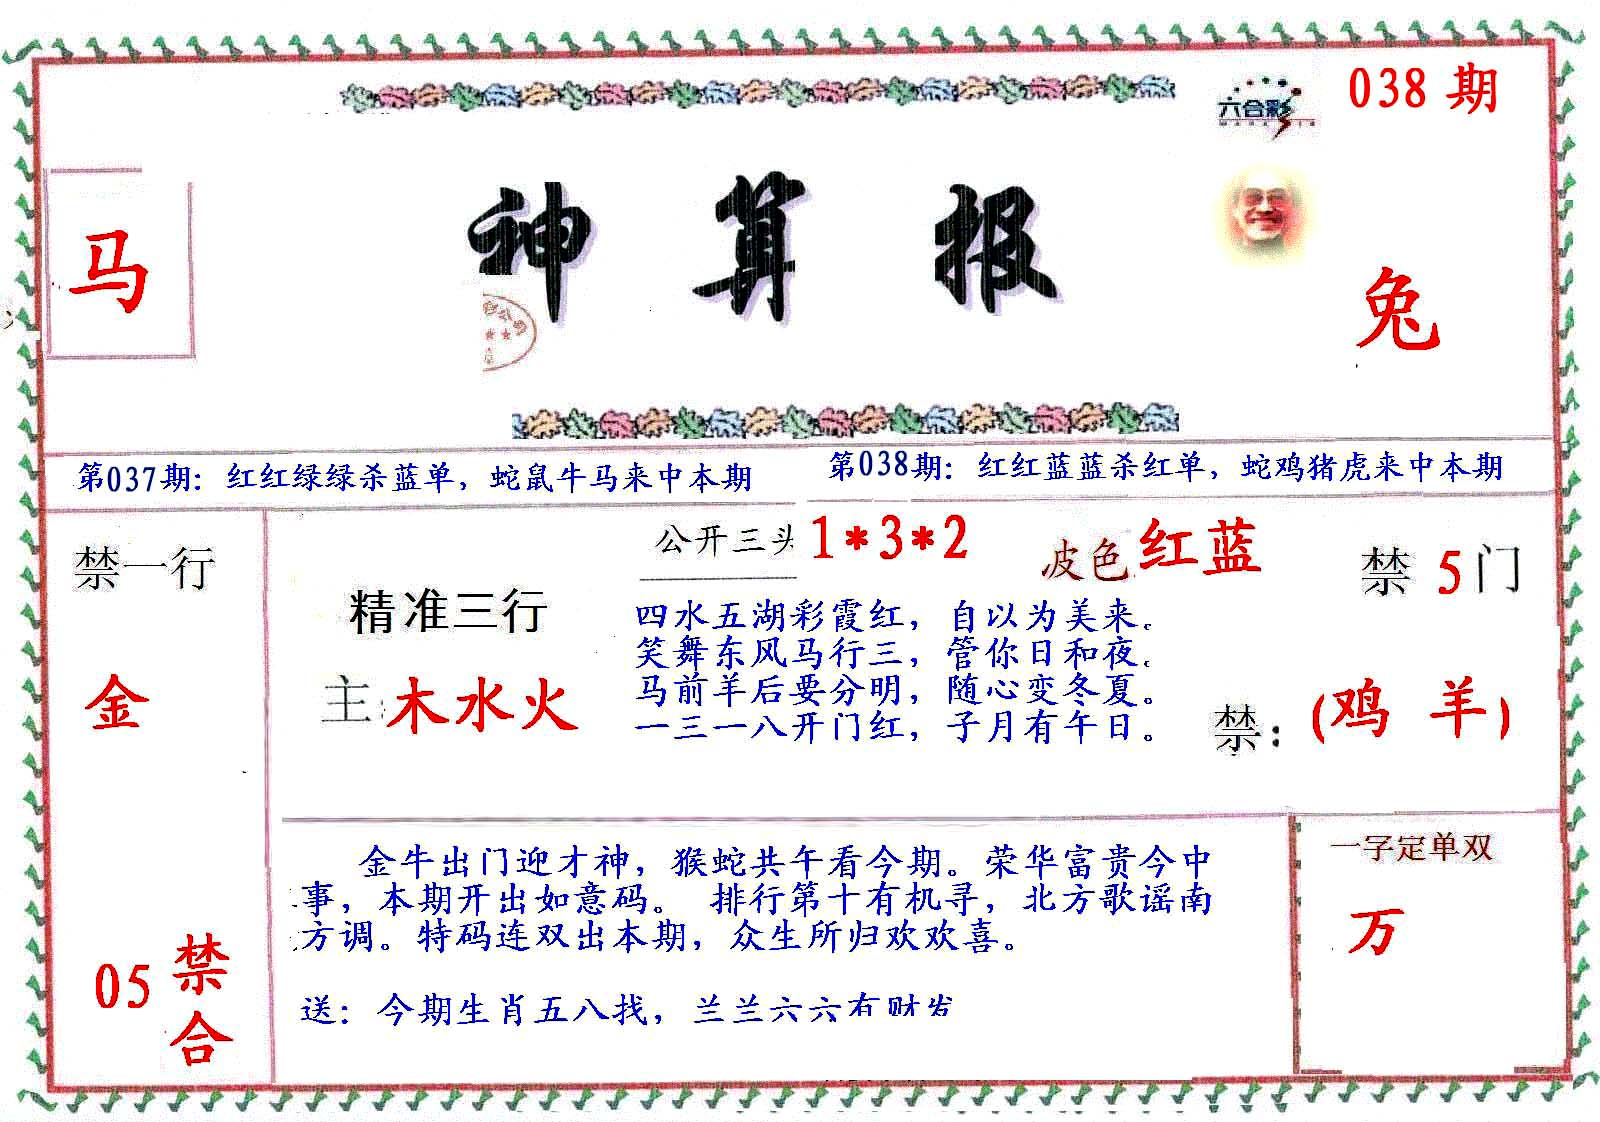 六合彩
038 期
马
神算报
兔
第037期：红红绿绿杀蓝单，蛇鼠牛马来中本期
第038期：红红蓝蓝杀红单，蛇鸡猪虎来中本期
禁一行
金
05 禁合
精准三行
主：木水火
公开三头 1*3*2
波色 红蓝
四水五湖彩霞红，自以为美来。
笑舞东风马行三，管你日和夜。
马前羊后要分明，随心变冬夏。
一三一八开门红，子月有午日。
禁 5 门
禁：(鸡 羊)
金牛出门迎才神，猴蛇共午看今期。荣华富贵今中
事，本期开出如意码。 排行第十有机寻，北方歌谣南
方调。特码连双出本期，众生所归欢欢喜。
送：今期生肖五八找，兰兰六六有财发
一字定单双
万